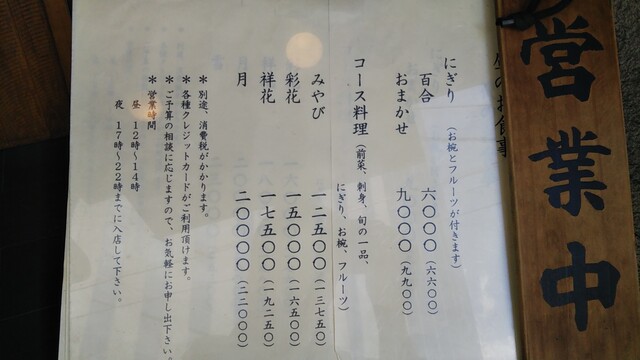 営業中
昼のお食事
にぎり（お椀とフルーツが付きます）
百合 六〇〇〇（六六〇〇）
おまかせ 九〇〇〇（九九〇〇）
コース料理（前菜、刺身、旬の一品、
にぎり、お椀、フルーツ）
みやび 一二五〇〇（一三七五〇）
彩花 一五〇〇〇（一六五〇〇）
祥花 一七五〇〇（一九二五〇）
月 二〇〇〇〇（二二〇〇〇）
＊別途、消費税がかかります。
＊各種クレジットカードがご利用頂けます。
＊ご予算の相談に応じますので、お気軽にお申し出下さい。
＊営業時間
昼 １２時～１４時
夜 １７時～２２時までに入店して下さい。